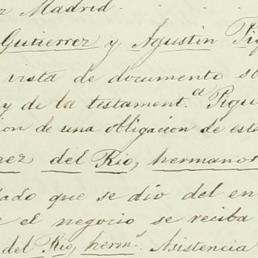 z Madrid.
Gutierrez y Agustin Pig
vista de documento so
y de la testament.ª Pigu
ion de una obligacion de est
rez del Rio, hermanos
dado que se dio del en
e el negocio se reciba
del Rio, herm.s Asistencia